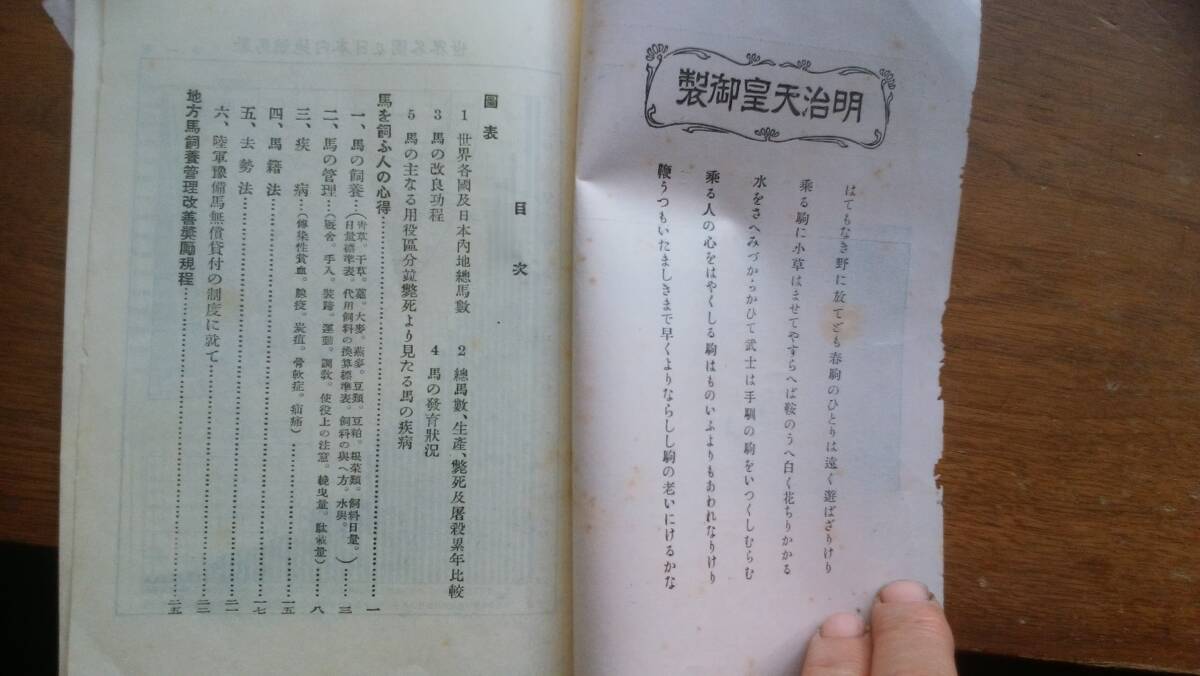 明治天皇御製
はてもなき野に放てども春駒のひとりは遠く遊ばざりけり
乘る駒に小草はませてやすらへば鞍のうへ白く花ちりかかる
水をさへみづからかひて武士は手馴の駒をいつくしむらむ
乘る人の心をはやくしる駒はものいふよりもあわれなりけり
鞭うつもいたましきまで早くよりならしし駒の老いにけるかな
目次
圖表
1 世界各國及日本內地總馬數
2 總馬數、生產、斃死及屠殺累年比較
3 馬の改良功程
4 馬の發育狀況
5 馬の主なる用役區分竝斃死より見たる馬の疾病
馬を飼ふ人の心得……一
一、馬の飼養…(靑草。干草。藁。大麥。燕麥。豆類。豆粕。根菜類。飼料日量。日量標準表。代用飼料の換算標準表。飼料の與へ方。水與。)…三
二、馬の管理…(厩舍。手入。裝蹄。運動。調敎。使役上の注意。輓曳量。駄載量)…八
三、疾病…(傳染性貧血。腺疫。炭疽。骨軟症。疝痛)…一五
四、馬籍法……一七
五、去勢法……二一
六、陸軍豫備馬無償貸付の制度に就て……二二
地方馬飼養管理改善奬勵規程……二五